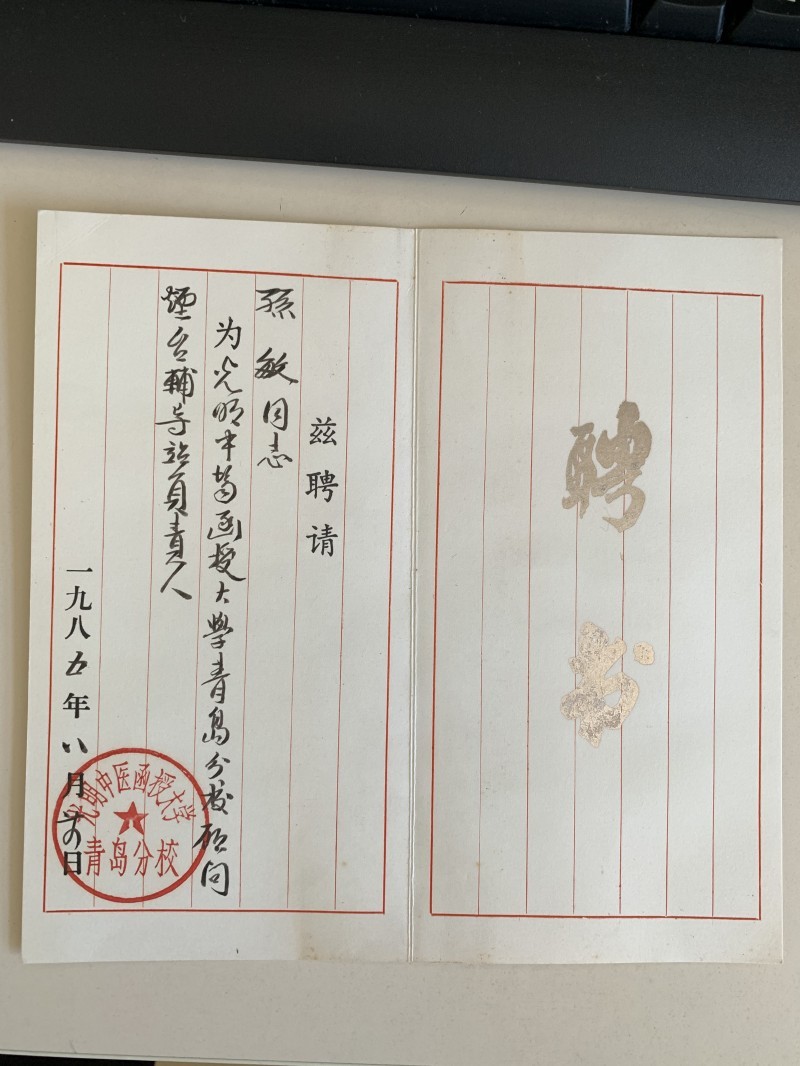 聘书
兹聘请
孫敏同志
为光明中醫函授大學青島分校顾问
煙台輔导站負責人
一九八五年八月日
光明中医函授大学
青岛分校